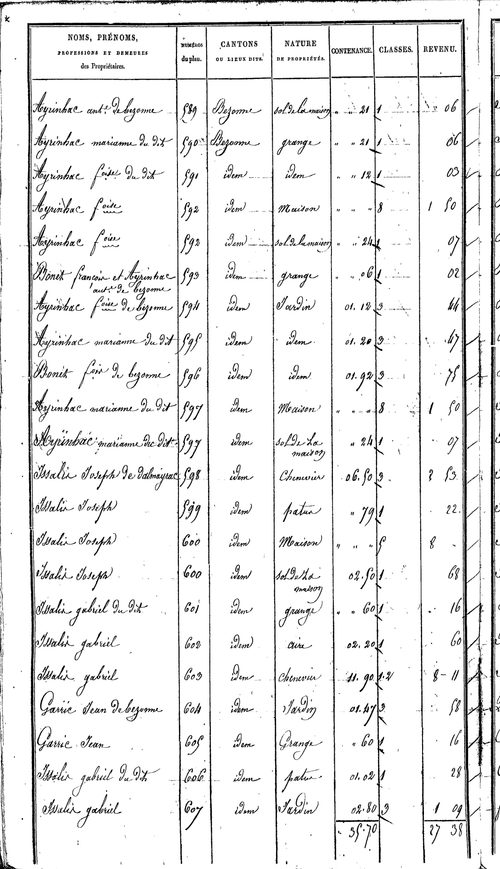 NOMS, PRÉNOMS,
PROFESSIONS ET DEMEURES
des Propriétaires.
NUMÉROS
du plan.
CANTONS
OU LIEUX DITS.
NATURE
DE PROPRIÉTÉS.
CONTENANCE.
CLASSES.
REVENU.
Ayrinhac ant.e de bezonne 589 Bezonne sol de la maison " " 21 1 06
Ayrinhac marianne du dit 590 Bezonne grange " " 21 1 06
Ayrinhac foise du dit 591 idem idem " " 12 1 03
Ayrinhac foise 592 idem Maison " " " 8 1 50
Ayrinhac foise 592 idem sol de la maison " 24 1 07
Bonit francois et Ayrinhac 593 idem grange " 06 1 02
ant.e de bezonne
Ayrinhac foise de bezonne 594 idem Jardin 01.12 3 44
Ayrinhac marianne du dit 595 idem idem 01.20 3 47
Bonit fois de bezonne 596 idem idem 01.92 3 75
Ayrinhac marianne du dit 597 idem Maison " " " 8 1 50
Ayrinhac marianne du dit 597 idem sol de la " 24 1 07
maison
Issalis Joseph de dalmayrac 598 idem Chenevier 06.50 3 2 53
Issalis Joseph 599 idem patus " 79 1 22
Issalis Joseph 600 idem Maison " " " 5 8
Issalis Joseph 600 idem sol de la 02.50 1 68
maison
Issalis gabriel du dit 601 idem grange " 60 1 16
Issalis gabriel 602 idem aire 02.20 1 60
Issalis gabriel 603 idem Chenevier 11.90 1.2 8-11
Garric Jean de bezonne 604 idem Jardin 01.47 3 58
Garric Jean 605 idem Grange " 60 1 16
Issalis gabriel du dit 606 idem patus 01.02 1 28
Issalis gabriel 607 idem Jardin 02.80 3 1 09
35.70 27 38